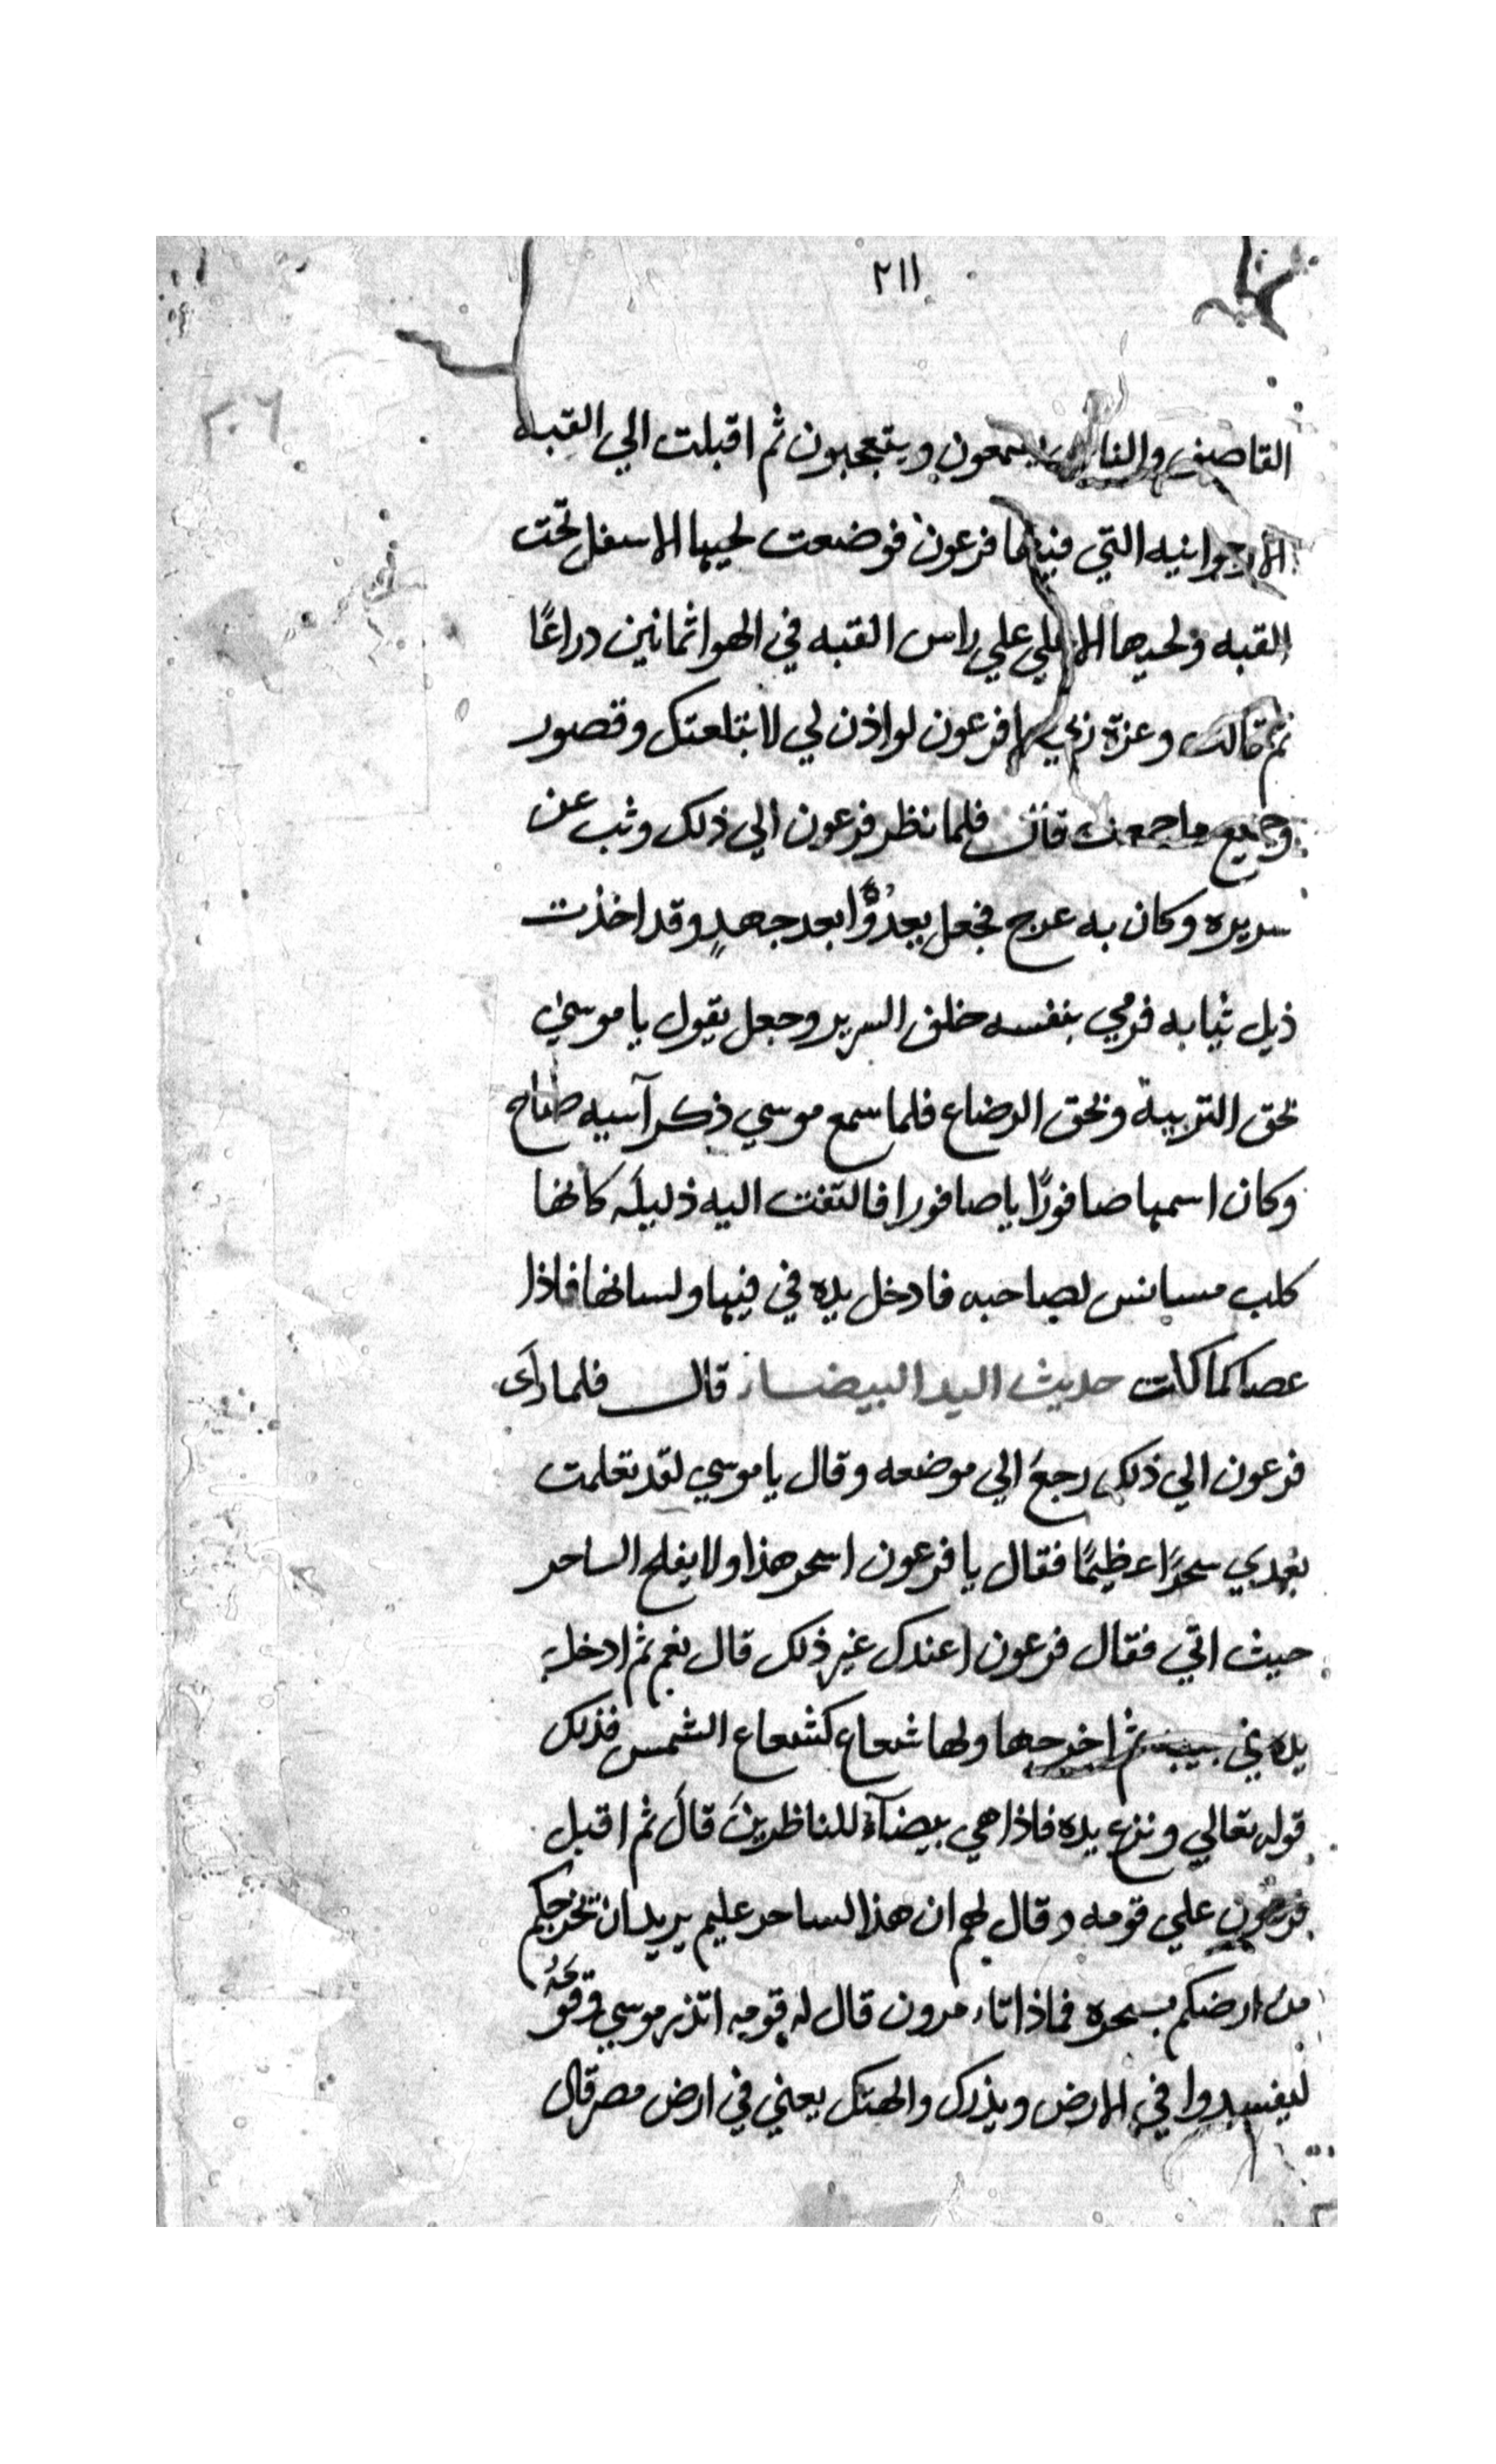 ٢١١
٢٠٦
القاصف والناس يسمعون ويتعجبون ثم اقبلت الي القبه
الارجوانيه التي فيها فرعون فوضعت لحيها الاسفل تحت
القبه ولحيها الاعلي علي راس القبه في الهوا ثمانين دراعًا
ثم قالت وعزة ربي يا فرعون لو اذن لي لابتلعتك وقصور
وجميع ما جمعت قال فلما نظر فرعون الي ذلك وثب عن
سريره وكان به عرج فجعل يعدوًا بعد جهدٍ وقد اخذت
ذيل ثيابه فرمي بنفسه خلف السرير وجعل يقول يا موسي
بحق التربية وبحق الرضاع فلما سمع موسي ذكر آسيه صاح
وكان اسمها صافورًا يا صافورا فالتفت اليه ذليلَه كانها
كلب مستانس لصاحبه فادخل يده في فيها ولسانها فاذا
عصا كما كانت حديث اليد البيضاء قال فلما رأى
فرعون الي ذلك رجع الي موضعه وقال يا موسي لقد تعلمت
بعدي سحرًا عظيمًا فقال يا فرعون اسحر هذا ولا يفلح الساحر
حيث اتي فقال فرعون اعندك غير ذلك قال نعم ثم ادخل
يده في جيبه ثم اخرجها ولها شعاع كشعاع الشمس فذلك
قوله تعالي ونزع يده فاذا هي بيضآء للناظرينَ قالَ ثم اقبل
فرعون علي قومه وقال لهم ان هذا لساحر عليم يريد ان يخرجكم
من ارضكم بسحره فماذا تاءمرون قال له قومه اتذر موسي وقومَهُ
ليفسدوا في الارض ويذرك والهتك يعني في ارض مصر قال